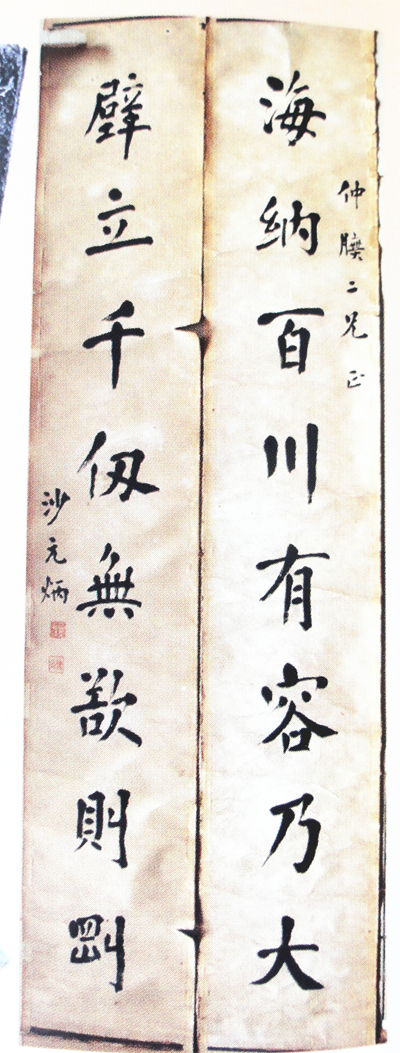 仲二兄正
海納百川有容乃大
壁立千仭無欲則剛
沙元炳